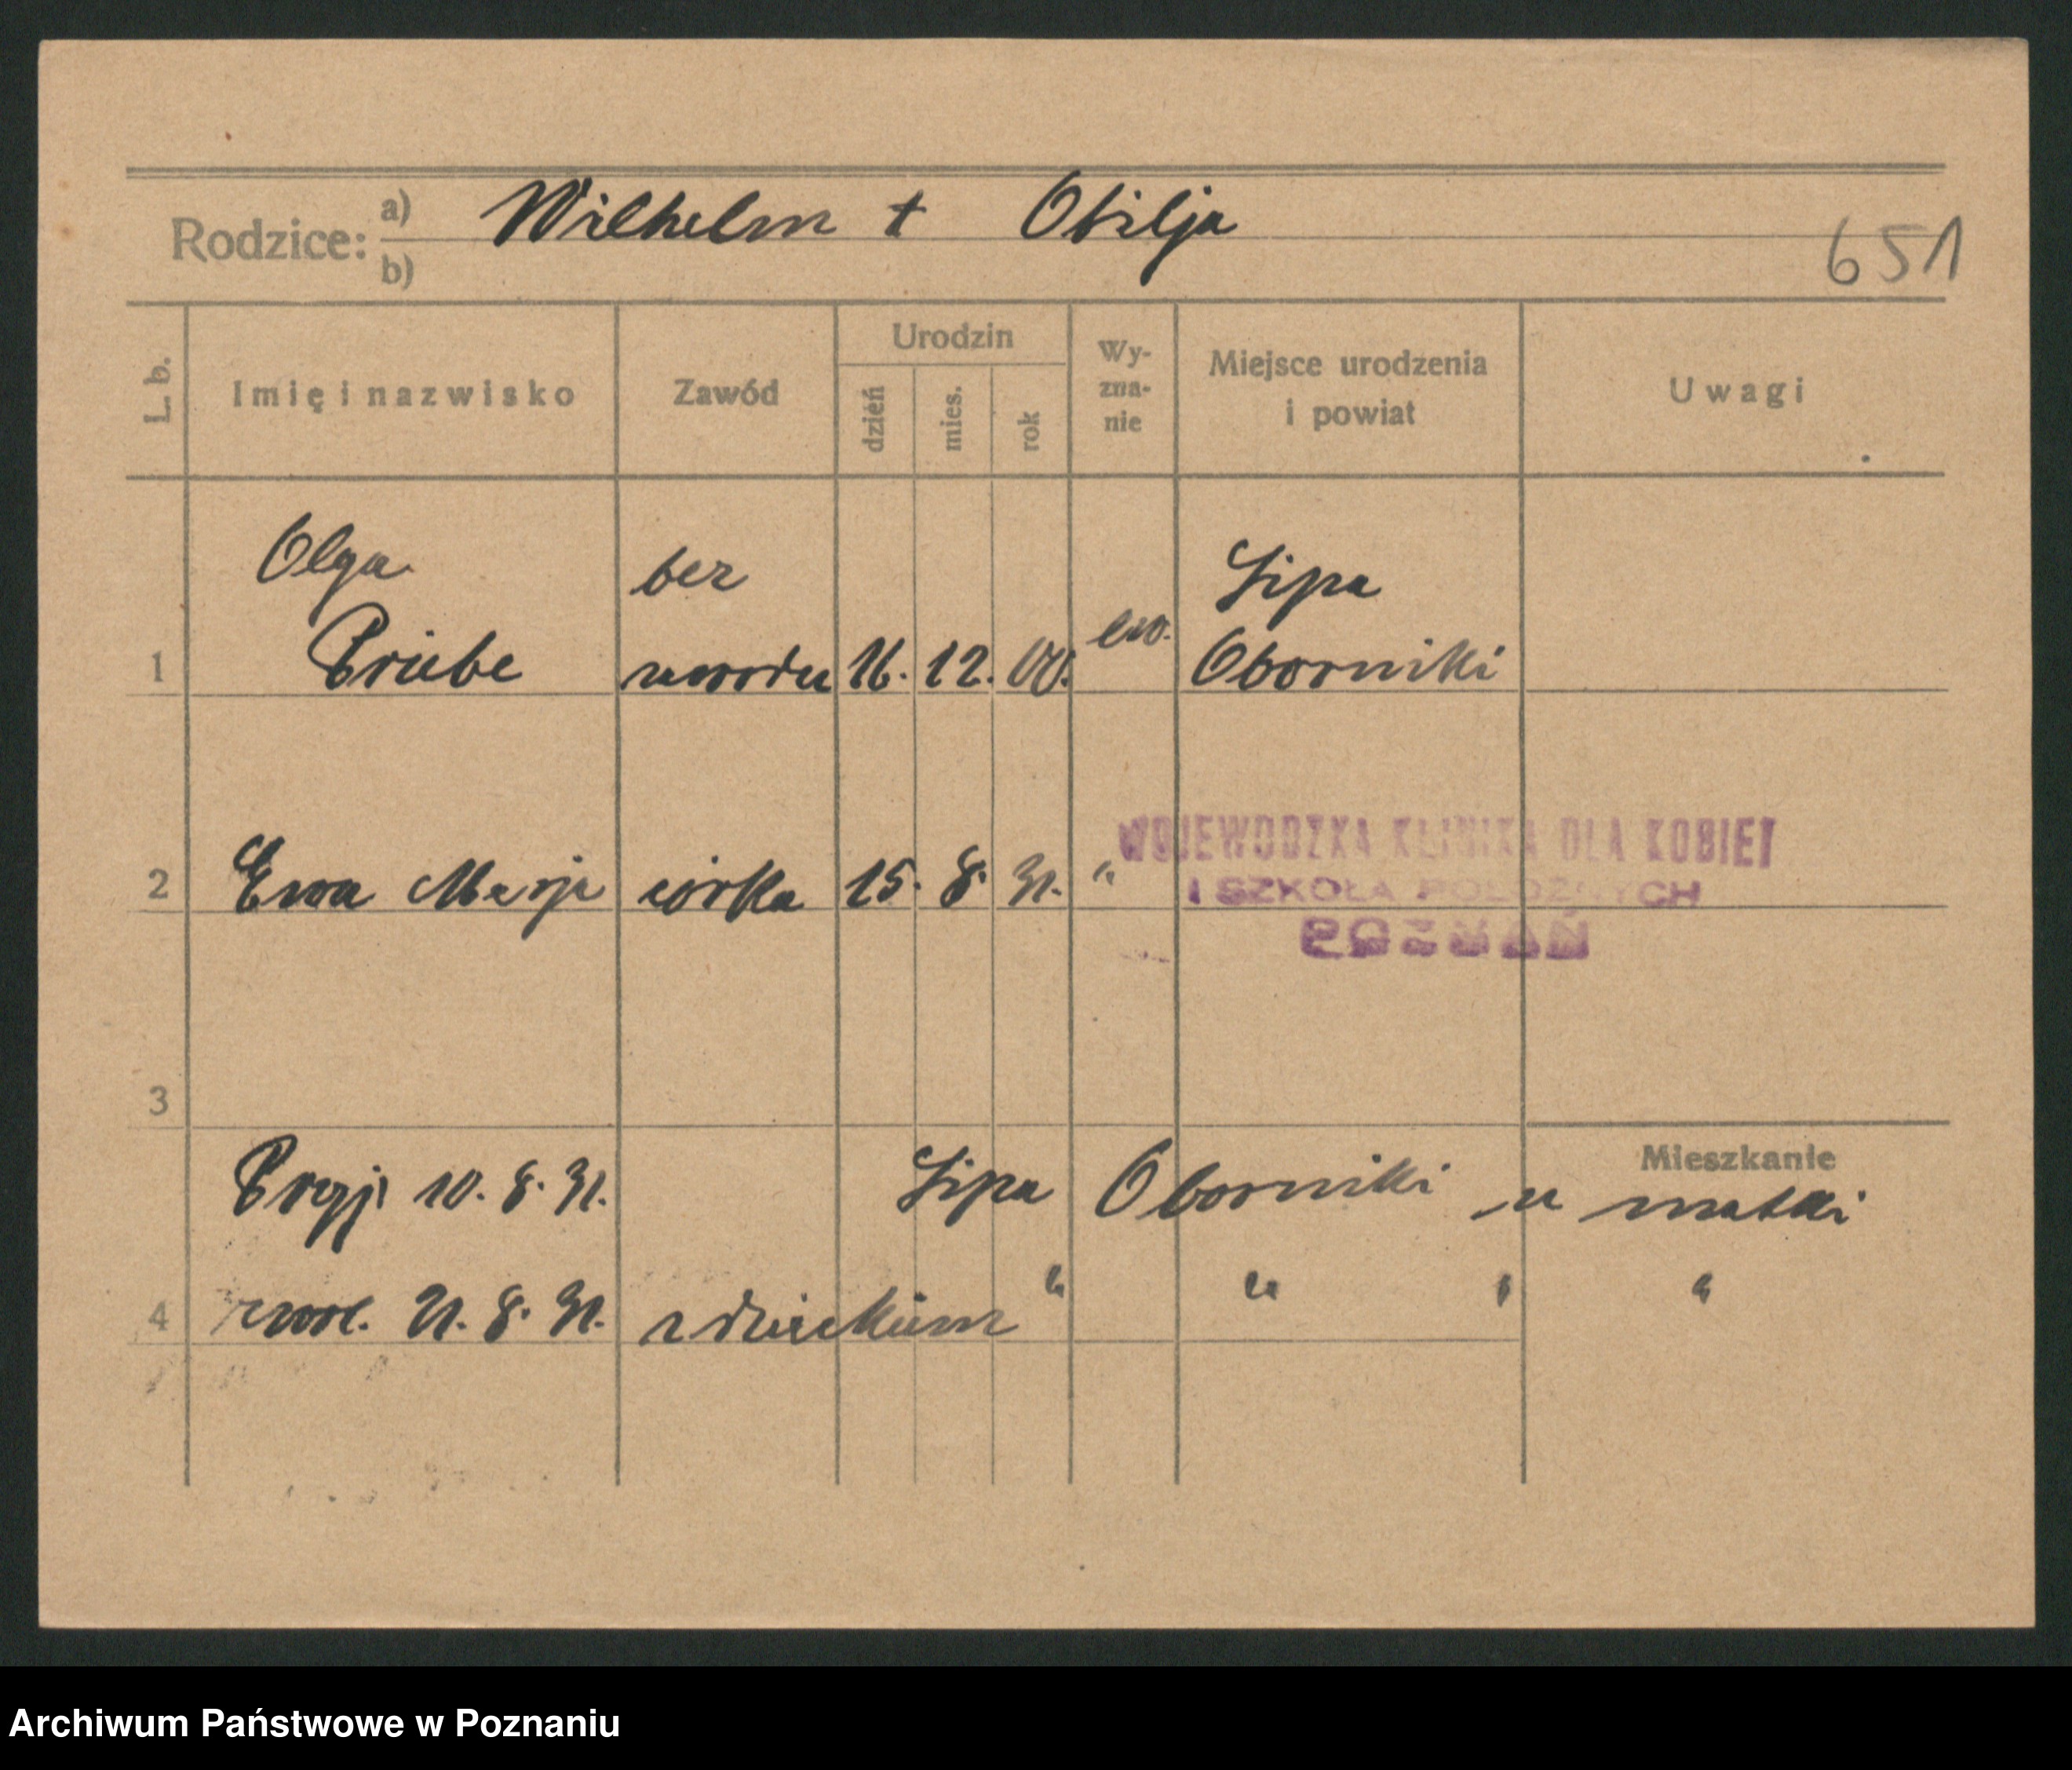 Rodzice: a) Wilhelm † Otilja
b)
651
L. b. Imię i nazwisko Zawód Urodzin dzień mies. rok Wy-zna-nie Miejsce urodzenia i powiat Uwagi
Olga bez Lipa
1 Priebe zawodu 16. 12. 00. ew. Oborniki
WOJEWODZKA KLINIKA DLA KOBIET
2 Ewa Marja córka 15. 8. 31. "
I SZKOŁA POŁOŻNYCH
POZNAŃ
3
Mieszkanie
Przyj. 10. 8. 31. Lipa Oborniki u matki
4 zwol. 21. 8. 31. z dzieckiem " " " "
Archiwum Państwowe w Poznaniu